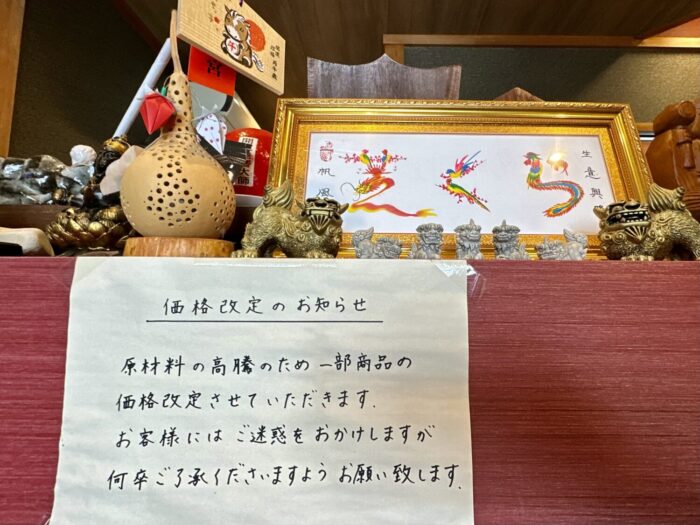 開
大師
帆風
生意興
価格改定のお知らせ
原材料の高騰のため 一部商品の
価格改定させていただきます.
お客様には ご迷惑を おかけしますが
何卒ご了承くださいますよう お願い致します.